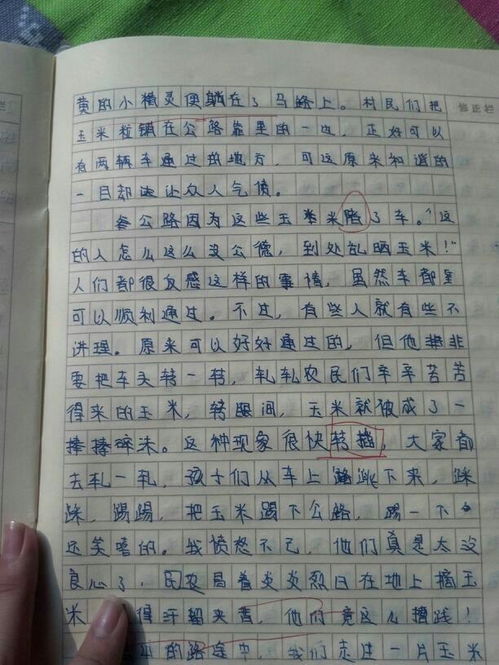 黄的小精灵便躺在了马路上。村民们把
玉米粒铺在公路靠里的一边，正好可以
有两辆车通过的地方，可这原来和谐的
一目却让众人气愤。
公路因为这些玉米了车。“这
的人怎么这么没公德，到处乱晒玉米！”
人们都很反感这样的事情，虽然车都是
可以顺利通过。不过，有些人就有些不
讲理。原来可以好好通过的，但他非
要把车头转一转，轧轧农民们辛辛苦苦
得来的玉米，转眼间，玉米就被成了一
捧捧碎沫。这种现象很快转播，大家都
去轧一轧，孩子们从车上跳下来，踩
踩，踢踢，把玉米踢下公路，踢一下
还笑嘻的。我愤怒不已，他们真是太没
良心了，民农冒着炎炎烈日在地上摘玉
米 得汗流夹背，他们竟这么撸践！
的路途中，我们走过一片玉米